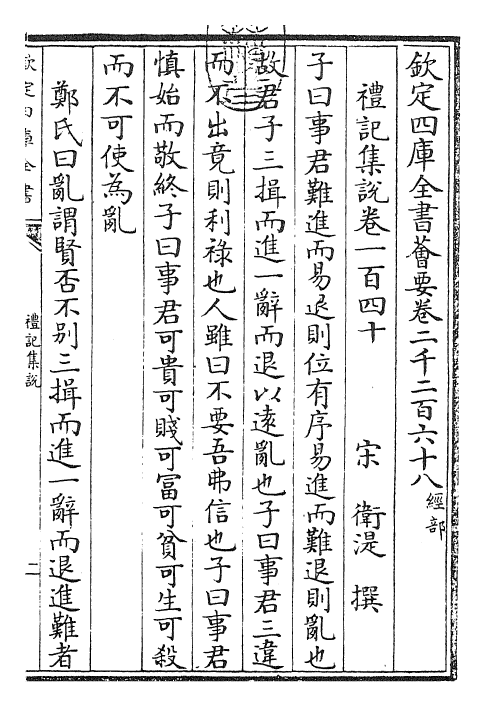 欽定四庫全書薈要卷二千二百六十八 經部
禮記集說卷一百四十 宋 衛湜 撰
子曰事君難進而易退則位有序易進而難退則亂也
故君子三揖而進一辭而退以遠亂也子曰事君三違
而不出竟則利祿也人雖曰不要吾弗信也子曰事君
慎始而敬終子曰事君可貴可賤可富可貧可生可殺
而不可使為亂
鄭氏曰亂謂賢否不别三揖而進一辭而退進難者
欽定四庫全書
禮記集說